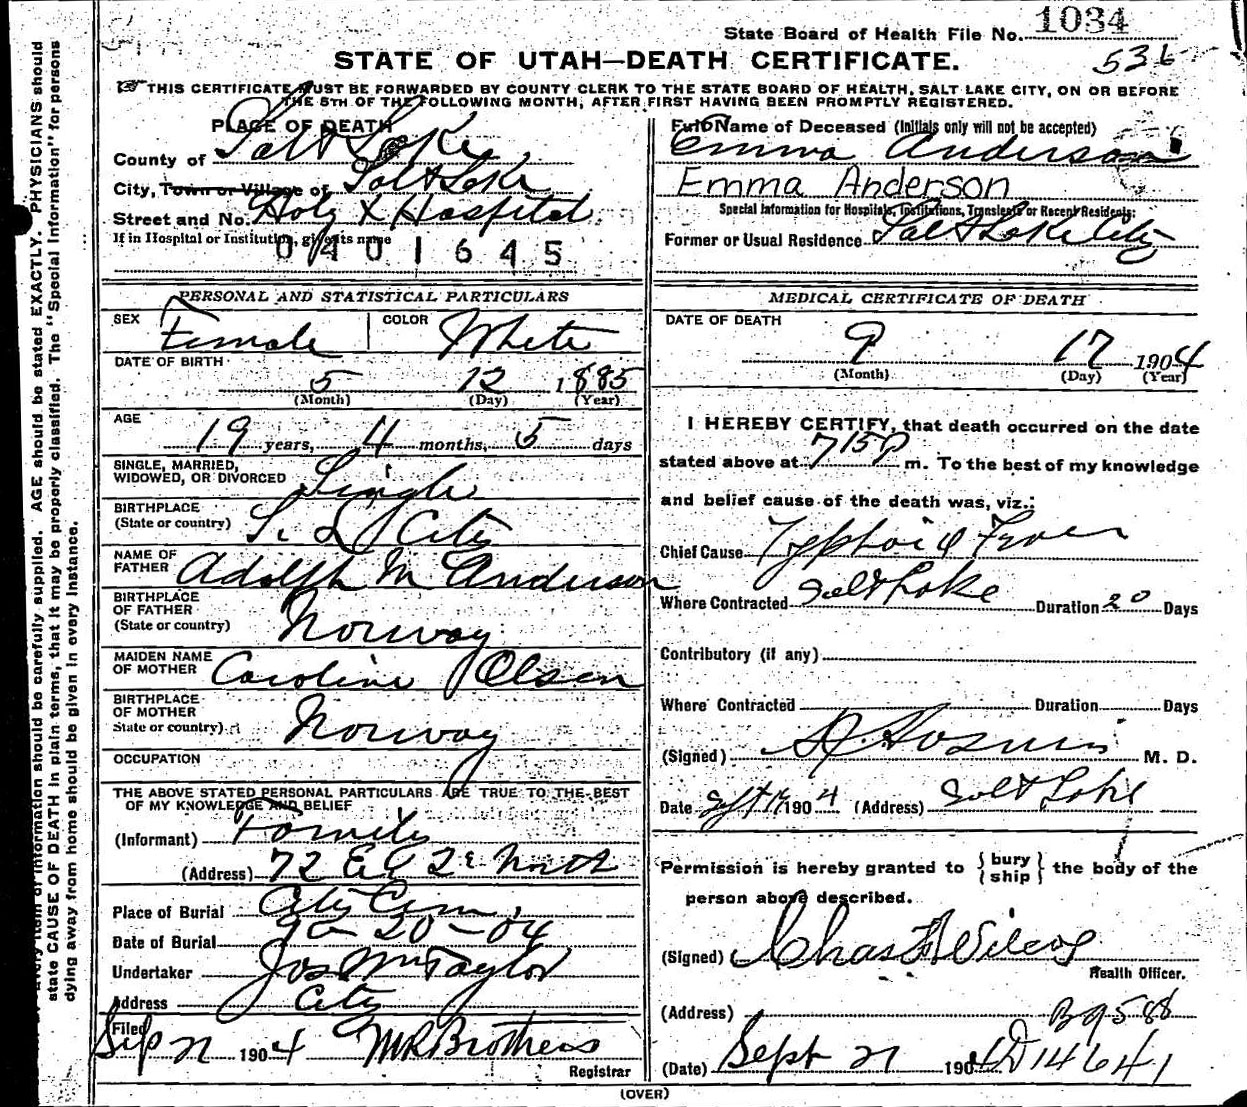 State Board of Health File No. 1034
536
STATE OF UTAH—DEATH CERTIFICATE.
☞ THIS CERTIFICATE MUST BE FORWARDED BY COUNTY CLERK TO THE STATE BOARD OF HEALTH, SALT LAKE CITY, ON OR BEFORE
THE 5TH OF THE FOLLOWING MONTH, AFTER FIRST HAVING BEEN PROMPTLY REGISTERED.
PLACE OF DEATH
County of Salt Lake
City, Town or Village of Salt Lake
Street and No. Holy X Hospital
If in Hospital or Institution, give its name
0401645
PERSONAL AND STATISTICAL PARTICULARS
SEX Female COLOR White
DATE OF BIRTH
5 12 1885
(Month) (Day) (Year)
AGE
19 years, 4 months, 5 days
SINGLE, MARRIED,
WIDOWED, OR DIVORCED Single
BIRTHPLACE
(State or country) S. L. City
NAME OF
FATHER Adolph M Anderson
BIRTHPLACE
OF FATHER
(State or country) Norway
MAIDEN NAME
OF MOTHER Caroline Olsen
BIRTHPLACE
OF MOTHER
State or country) Norway
OCCUPATION
THE ABOVE STATED PERSONAL PARTICULARS ARE TRUE TO THE BEST
OF MY KNOWLEDGE AND BELIEF
(Informant) Family
(Address) 72 E 2 North
Place of Burial City Cem,
Date of Burial 20-04
Undertaker Jos Wm Taylor
Address City
Filed Sep 21 1904 M R Brothers
Registrar
Full Name of Deceased (Initials only will not be accepted)
Emma Anderson
Emma Anderson
Special Information for Hospitals, Institutions, Transients or Recent Residents:
Former or Usual Residence Salt Lake City
MEDICAL CERTIFICATE OF DEATH
DATE OF DEATH
9 17 1904
(Month) (Day) (Year)
I HEREBY CERTIFY, that death occurred on the date
stated above at 715 P m. To the best of my knowledge
and belief cause of the death was, viz.:
Chief Cause Typhoid Fever
Where Contracted Salt Lake Duration 20 Days
Contributory (if any)
Where Contracted Duration Days
(Signed) M. D.
Date Sept 1904 (Address) Salt Lake
Permission is hereby granted to { bury
ship } the body of the
person above described.
(Signed) Chas F Wilcox
Health Officer.
(Address) B 9588
(Date) Sept 21 1904 D 14641
(OVER)
information should be carefully supplied. AGE should be stated EXACTLY. PHYSICIANS should
state CAUSE OF DEATH in plain terms, that it may be properly classified. The "Special Information" for persons
dying away from home should be given in every instance.